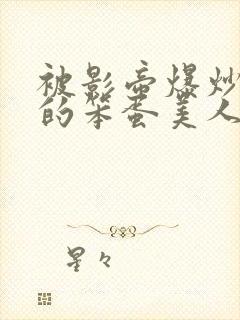 被影帝爆炒
的笨蛋美人
星々